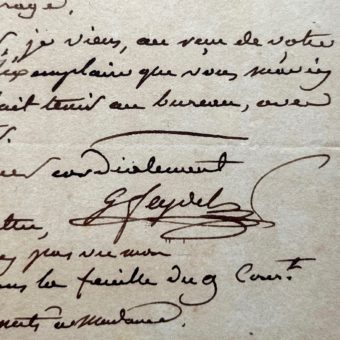 rage.
je viens, au reçu de votre
exemplaire que vous m'avez
fait tenir au bureau, avec
cordialement
G Feydel
pas vu mon
la feuille du 9 Cour.t